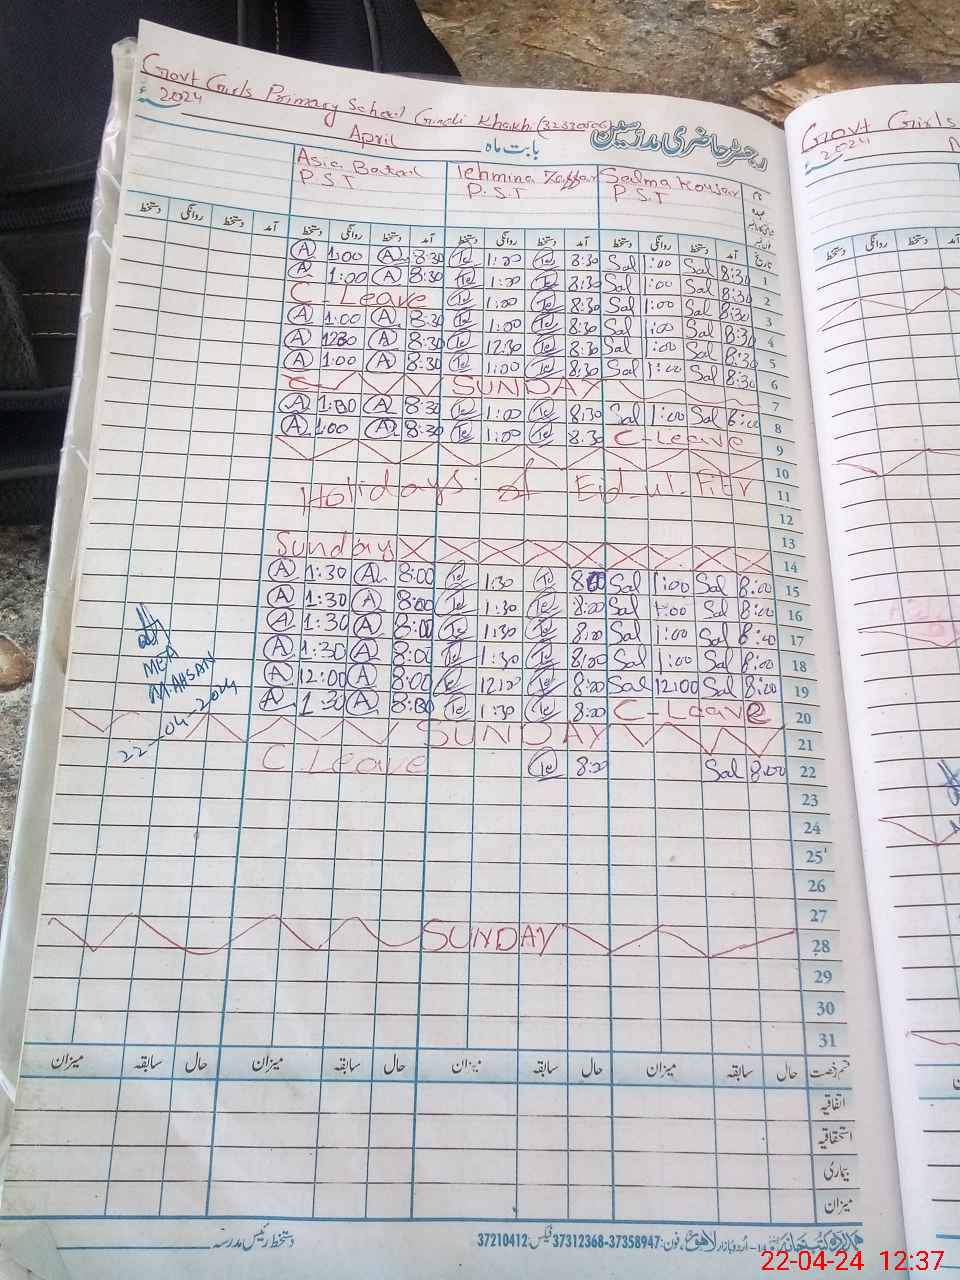 Govt Girls Primary School
2024
April
رجسٹر حاضری مدرسین
بابت ماہ
Asia Batool Tehmina Zaffar Salma Kousar
P.S.T P.S.T P.S.T
دستخط روانگی دستخط آمد دستخط روانگی دستخط آمد دستخط روانگی دستخط آمد دستخط روانگی دستخط آمد تاریخ
A 1:00 A 8:30 Te 1:00 Te 8:30 Sal 1:00 Sal 8:30 1
A 1:00 A 8:30 Te 1:00 Te 8:30 Sal 1:00 Sal 8:30 2
C-Leave Te 1:00 Te 8:30 Sal 1:00 Sal 8:30 3
A 1:00 A 8:30 Te 1:00 Te 8:30 Sal 1:00 Sal 8:30 4
A 12:30 A 8:30 Te 12:30 Te 8:30 Sal 1:00 Sal 8:30 5
A 1:00 A 8:30 Te 1:00 Te 8:30 Sal 1:00 Sal 8:30 6
SUNDAY 7
A 1:00 A 8:30 Te 1:00 Te 8:30 Sal 1:00 Sal 8
A 1:00 A 8:30 Te 1:00 Te 8:30 C-Leave 9
10
Holidays of Eid-ul-Fitr 11
12
13
Sunday 14
A 1:30 A 8:00 Te 1:30 Te 8:00 Sal 1:00 Sal 8:00 15
A 1:30 A 8:00 Te 1:30 Te 8:00 Sal 1:00 Sal 8:00 16
A 1:30 A 8:00 Te 1:30 Te 8:00 Sal 1:00 Sal 8:00 17
A 1:30 A 8:00 Te 1:30 Te 8:00 Sal 1:00 Sal 8:00 18
A 12:00 A 8:00 Te 12:00 Te 8:00 Sal 12:00 Sal 8:00 19
A 1:30 A 8:00 Te 1:30 Te 8:00 C-Leave 20
SUNDAY 21
C Leave Te 8:00 Sal 8:00 22
MEA
M.AHSAN
22-04-2024
23
24
25
26
27
SUNDAY 28
29
30
31
میزان سابقہ حال میزان سابقہ حال میزان سابقہ حال میزان سابقہ حال
اتفاقیہ
استحقاقیہ
بیماری
میزان
دستخط رئیس مدرسہ
اردو بازار لاہور فون: 37358947-37312368 فیکس: 37210412
Govt Girls
2024
دستخط روانگی دستخط
22-04-24 12:37